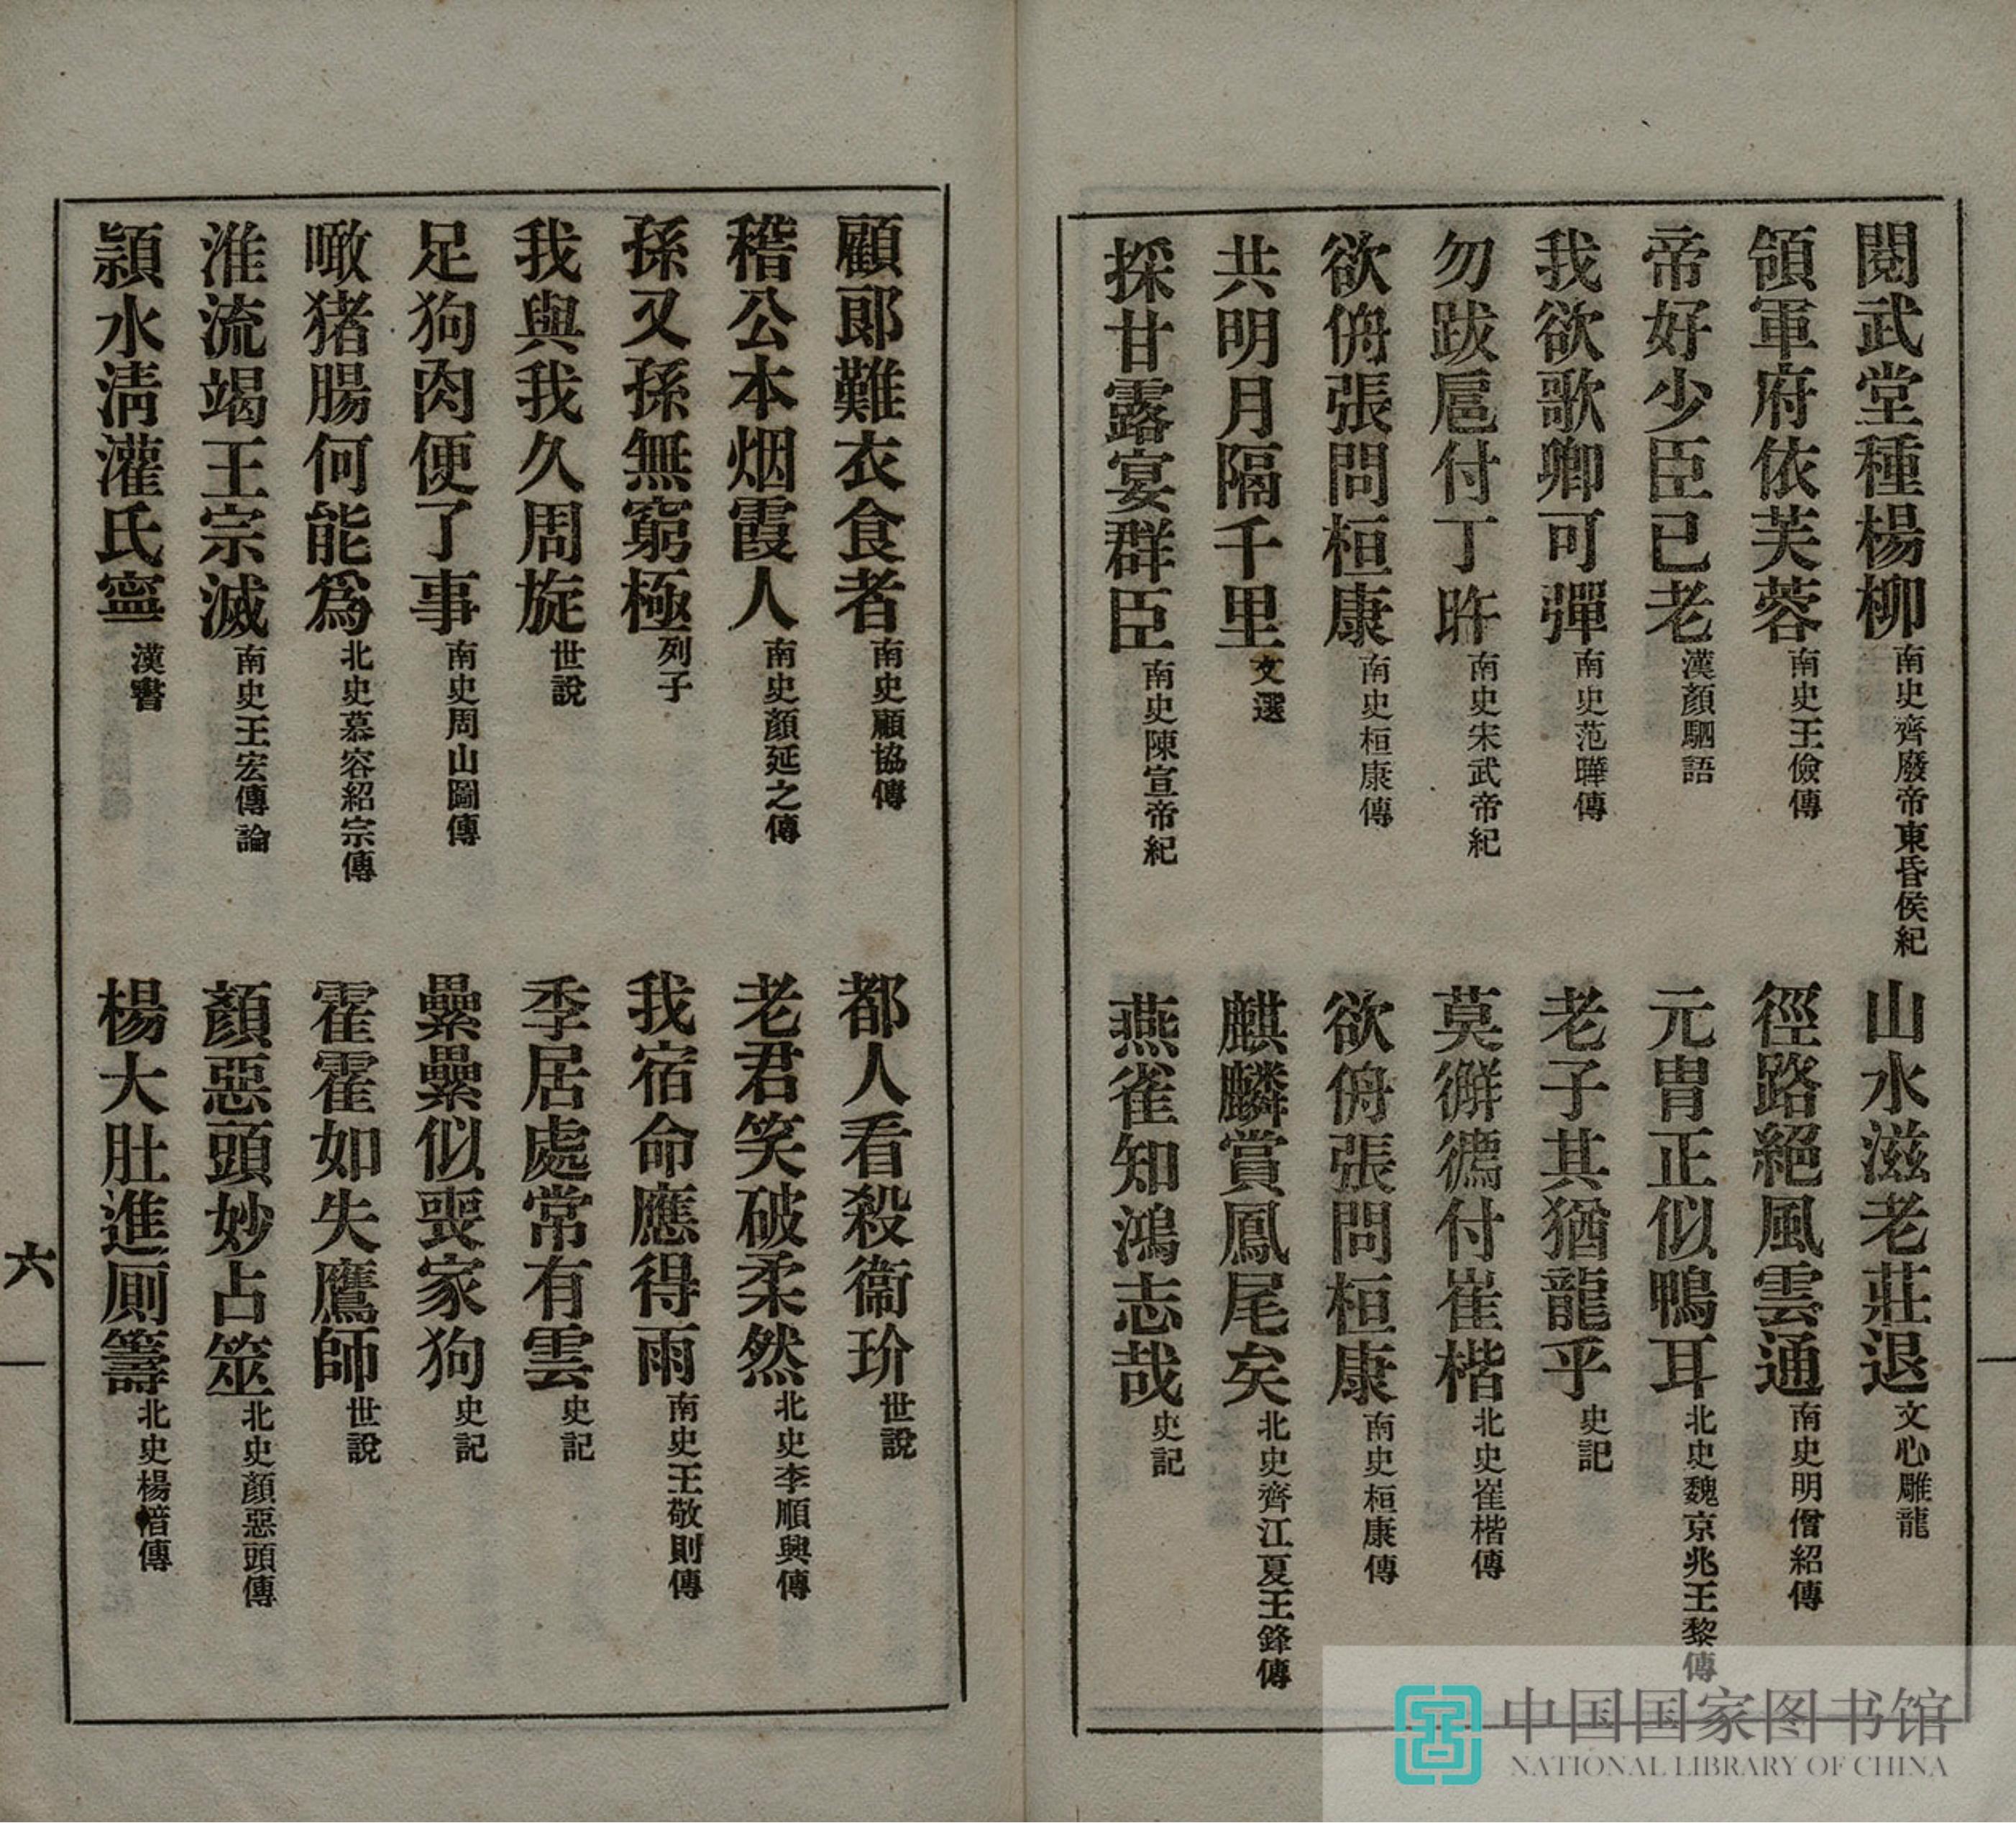 閱武堂種楊柳南史齊廢帝東昏侯紀　山水滋老莊退文心雕龍
領軍府依芙蓉南史王儉傳　徑路絕風雲通南史明僧紹傳
帝好少臣已老漢顏駟語　元冑正似鴨耳北史魏京兆王黎傳
我欲歌卿可彈南史范曄傳　老子其猶龍乎史記
勿跋扈付丁旿南史宋武帝紀　莫付崔楷北史崔楷傳
欲侜張問桓康南史桓康傳　欲侜張問桓康南史桓康傳
共明月隔千里文選　麒麟賞鳳尾矣北史齊江夏王鋒傳
採甘露宴群臣南史陳宣帝紀　燕雀知鴻志哉史記
顧郎難衣食者南史顧協傳　都人看殺衞玠世說
稽公本烟霞人南史顏延之傳　老君笑破柔然北史李順興傳
孫又孫無窮極列子　我宿命應得雨南史王敬則傳
我與我久周旋世說　季居處常有雲史記
足狗肉便了事南史周山圖傳　纍纍似喪家狗史記
噉猪腸何能爲北史慕容紹宗傳　霍霍如失鷹師世說
淮流竭王宗滅南史王宏傳論　顏惡頭妙占筮北史顏惡頭傳
潁水清灌氏寧漢書　楊大肚進厠籌北史楊愔傳
六
中国国家图书馆
NATIONAL LIBRARY OF CHINA